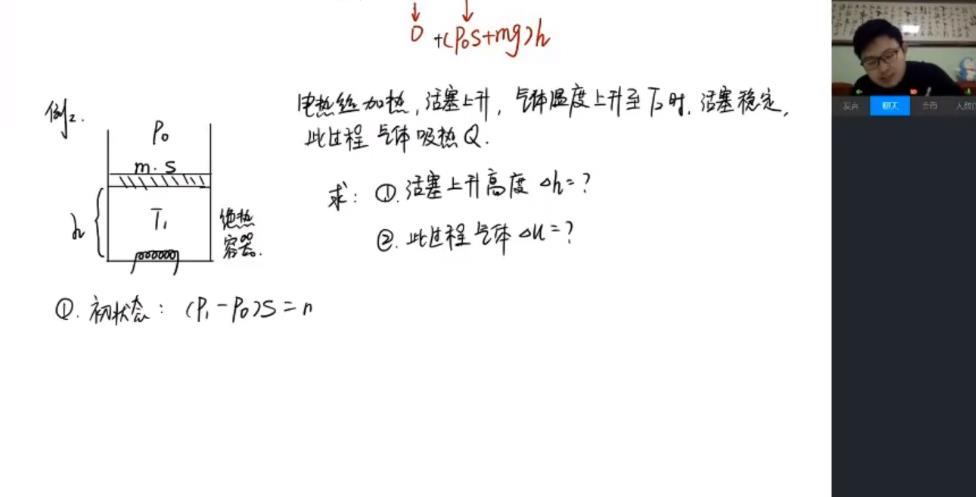 0 +(P₀S+mg)h
例2.
电热丝加热,活塞上升,气体温度上升至T₂时,活塞稳定,
此过程气体吸热Q.
P₀
m.S
h
T₁
绝热
容器.
求:①.活塞上升高度 Δh=?
②.此过程气体 Δu=?
①.初状态:(P₁-P₀)S=n
发言
聊天